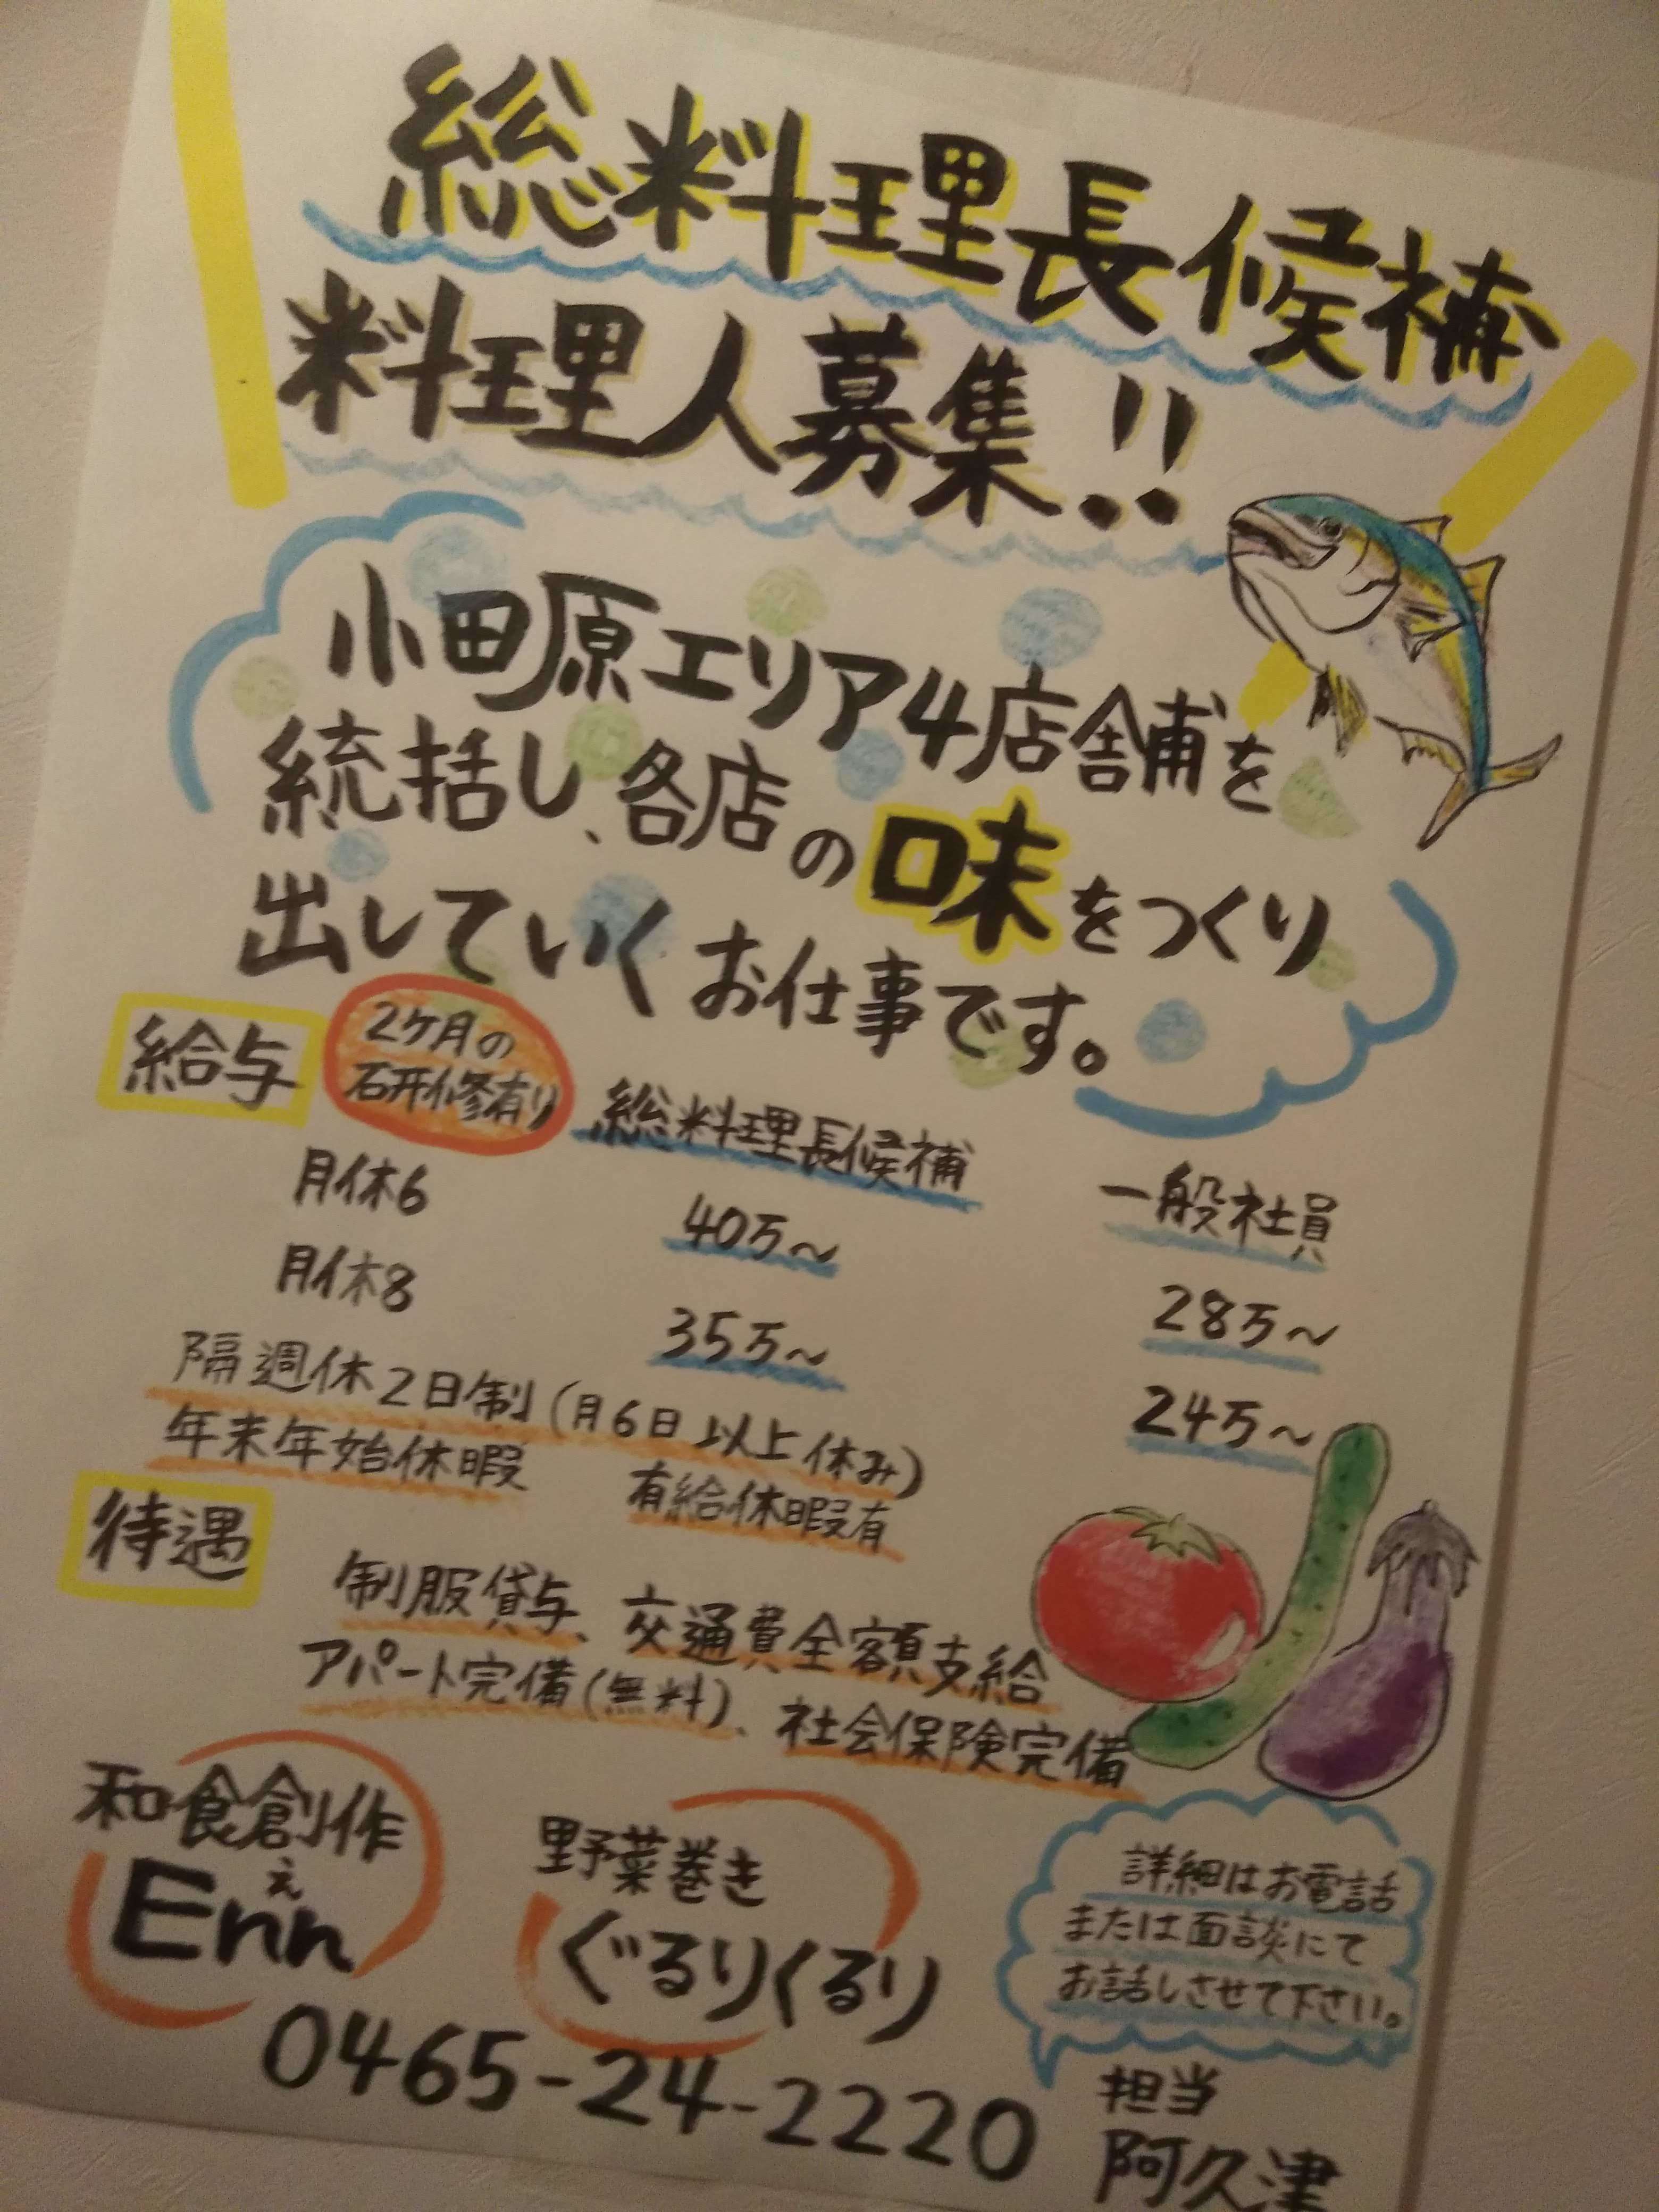 総料理長候補
料理人募集!!
小田原エリア4店舗を
統括し、各店の味をつくり
出していくお仕事です。
給与
2ケ月の
研修有り
総料理長候補
一般社員
月休6
40万~
28万~
月休8
35万~
24万~
隔週休2日制(月6日以上休み)
年末年始休暇 有給休暇有
待遇
制服貸与、交通費全額支給
アパート完備(無料)、社会保険完備
和食創作
え
Enn
野菜巻き
ぐるりくるり
詳細はお電話
または面談にて
お話しさせて下さい。
0465-24-2220
担当
阿久津